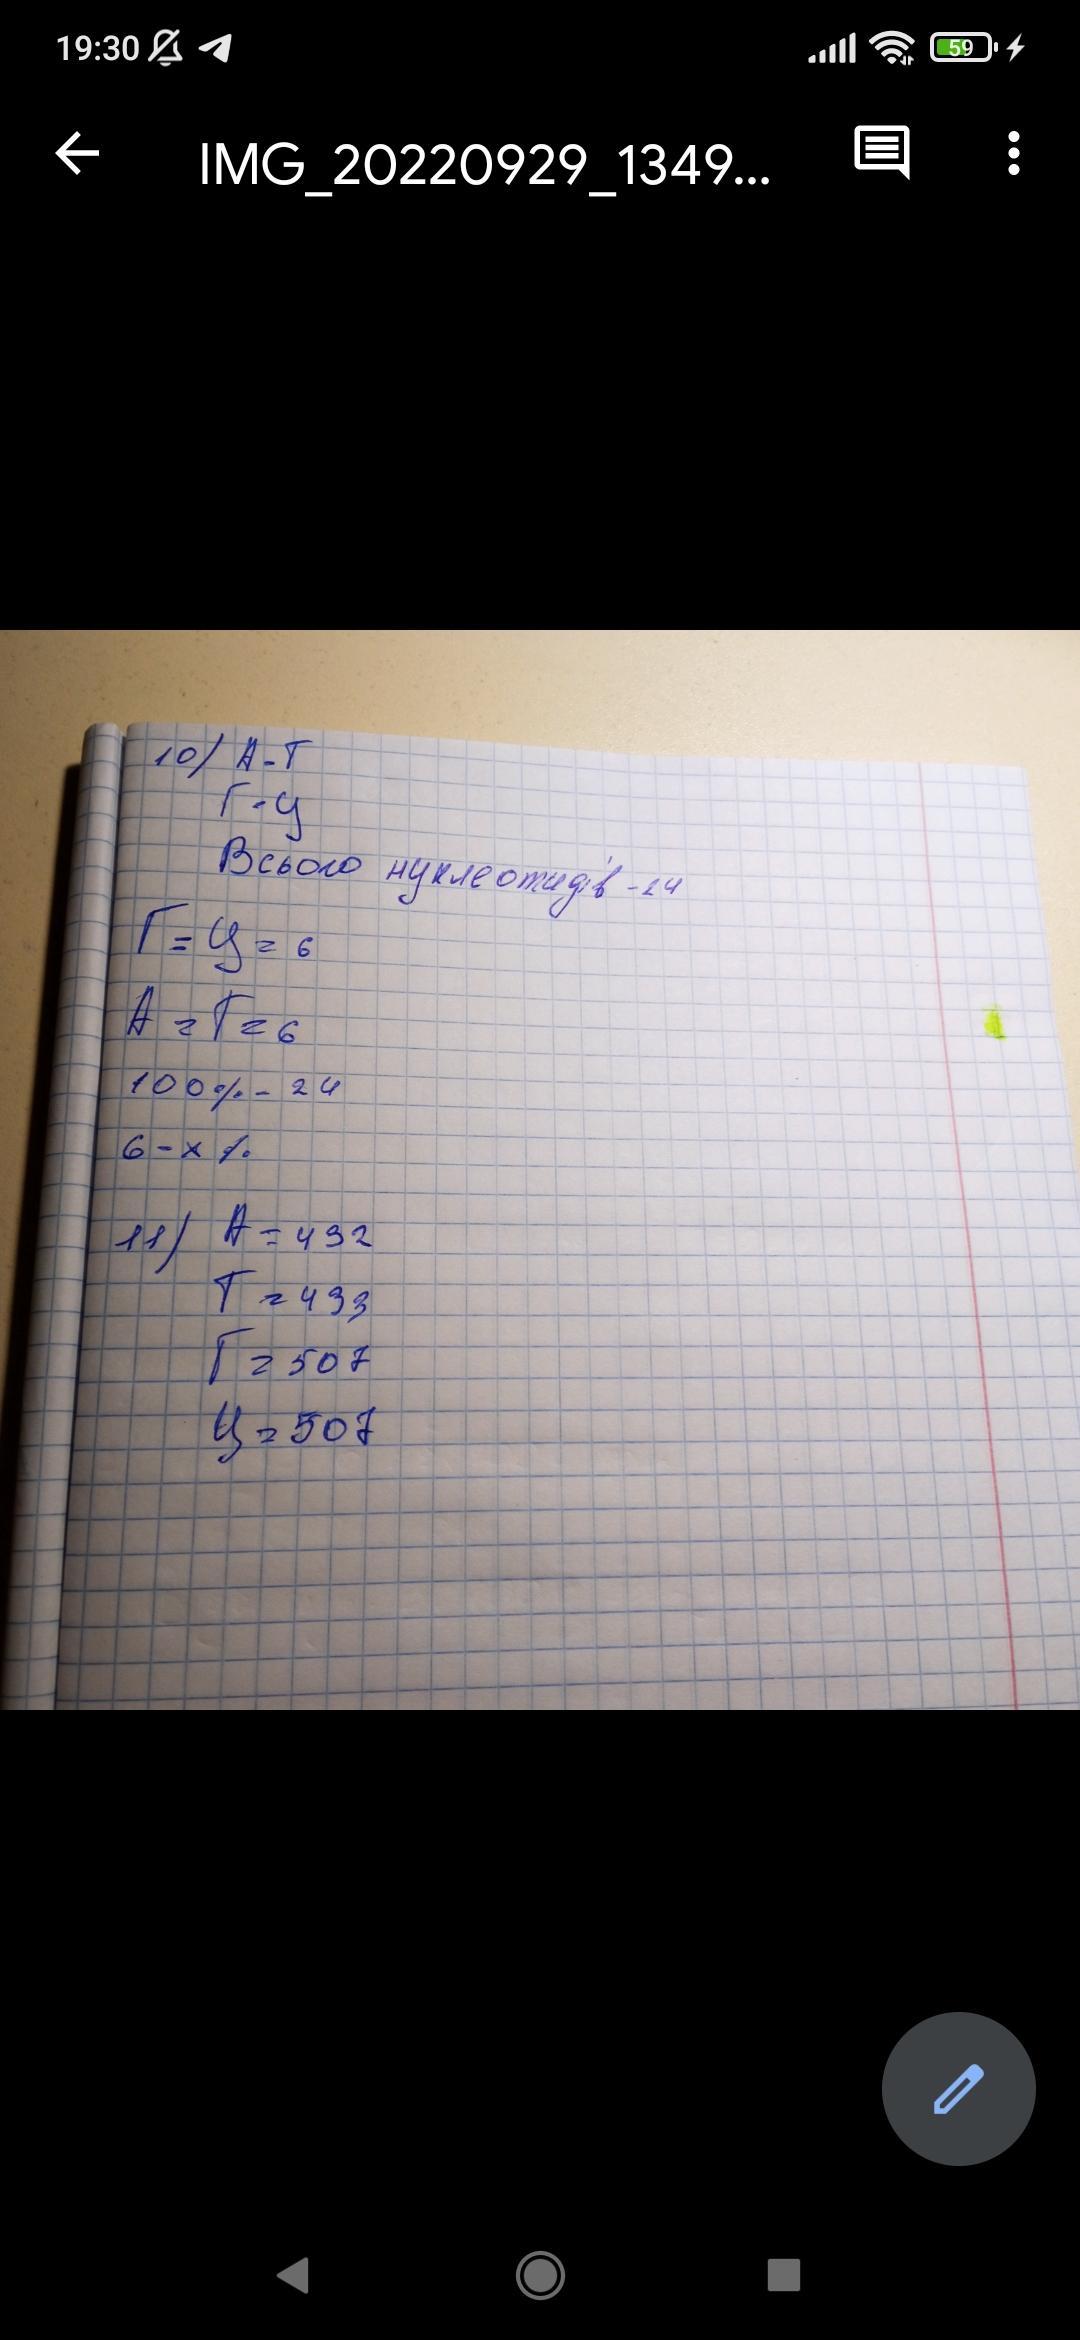 19:30
59
IMG_20220929_1349...
10) А-Т
Г-Ц
Всього нуклеотидів -24
Г=Ц=6
А=Т=6
100%-24
6-х%
11) А=492
Т=493
Г=507
Ц=507